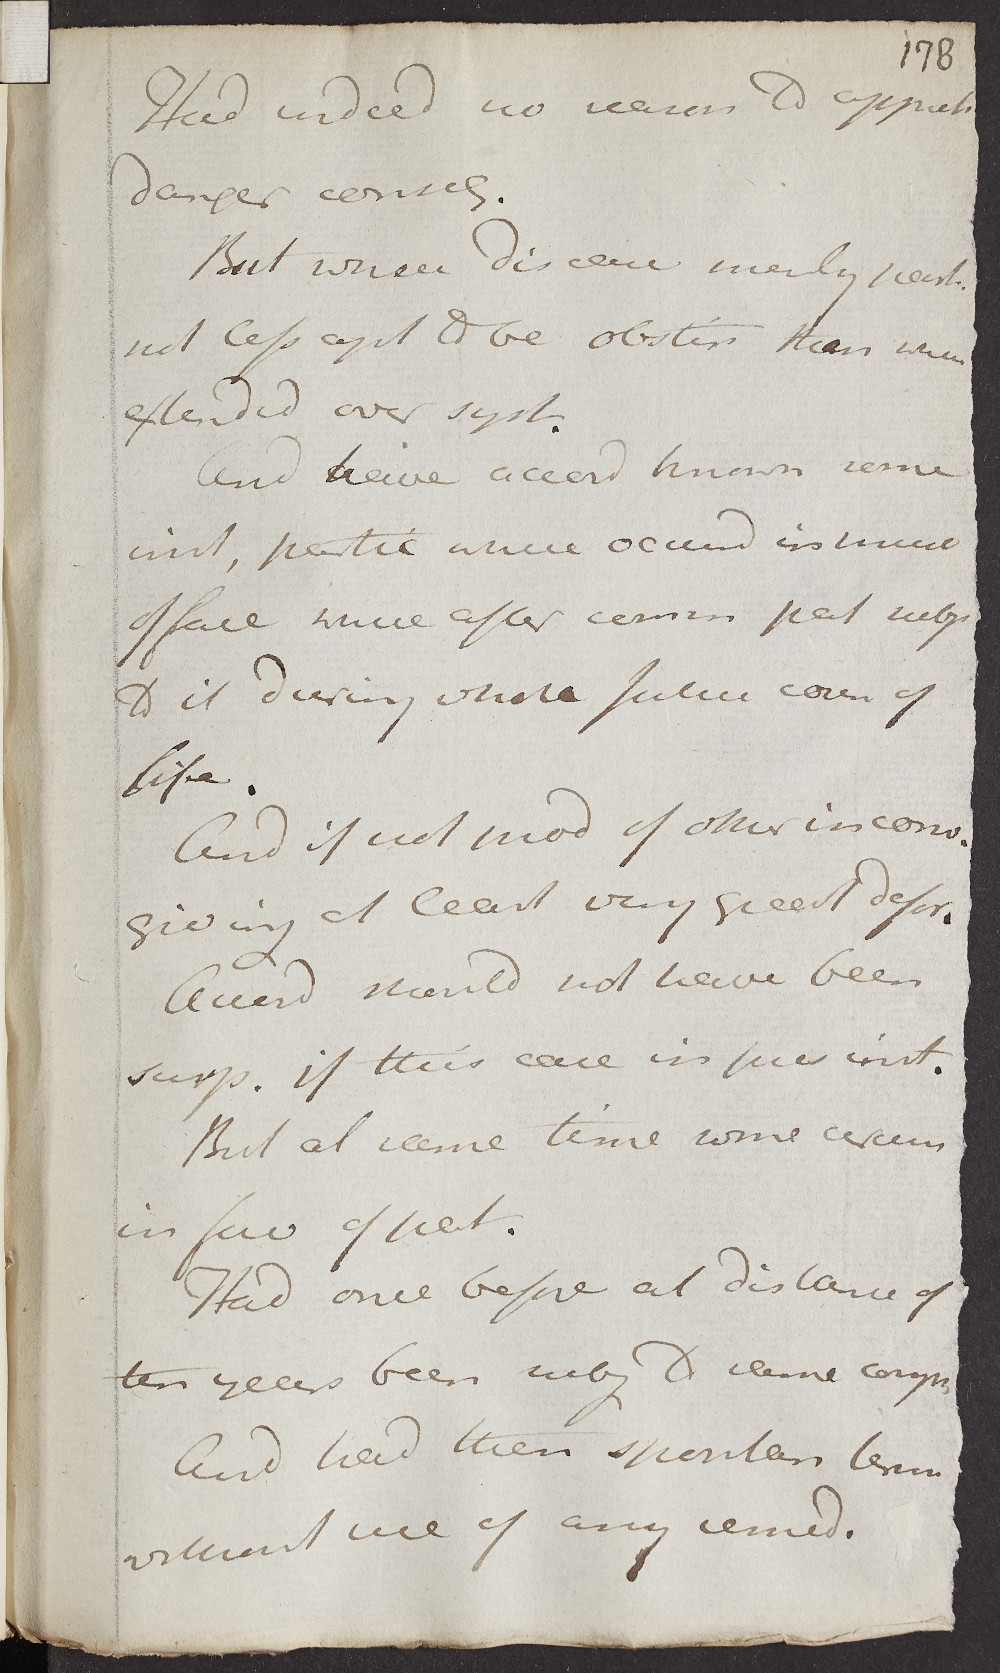 178
Had indeed no reason to appreh
danger conseq.
But when disease merely part.
not less apt to be obstin than when
extended over syst.
And have accord known some
inst, partic where occurd in musc
of face where after comm pat subj
to it during whole future cours of
life.
And if not prod of other inconv.
giving at least very great defor.
Accord should not have been
surp. if this case in pres inst.
But at same time some circum
in fav of pat.
Had once before at distance of
ten years been subj to same comp
And had then spontan term
without use of any remed.